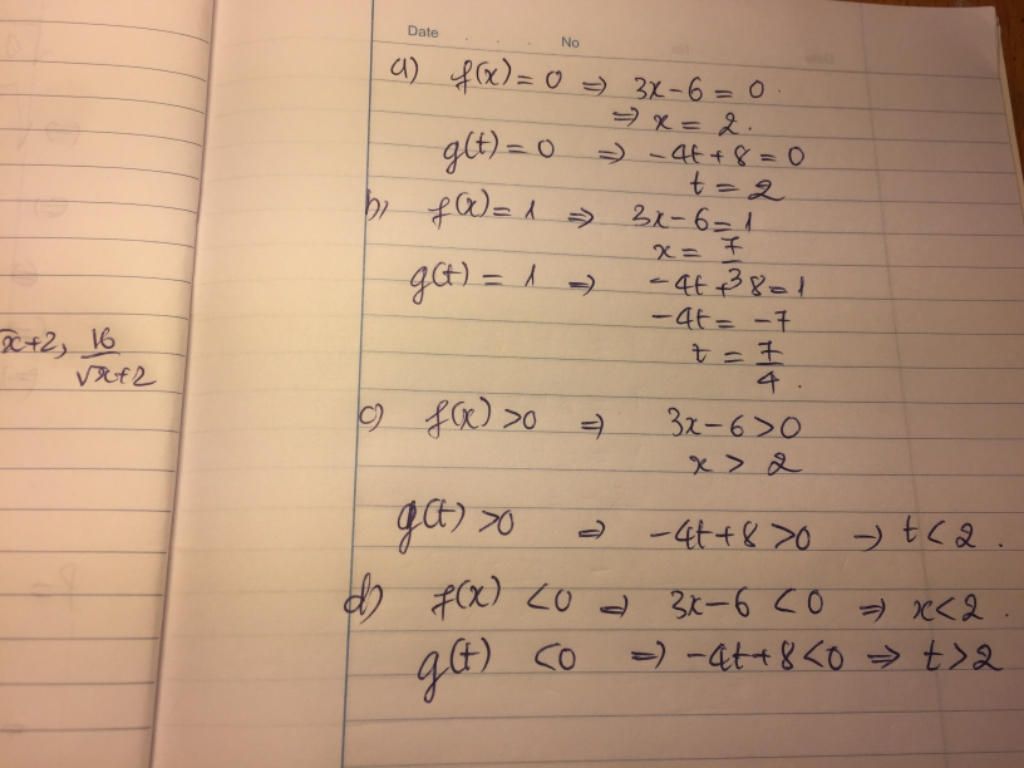 Date . . . No
a) f(x) = 0 ⇒ 3x-6 = 0.
⇒ x = 2.
g(t) = 0 ⇒ -4t+8 = 0
t = 2
b) f(x) = 1 ⇒ 3x-6 = 1
x = 7/3
g(t) = 1 ⇒ -4t+8 = 1
-4t = -7
t = 7/4.
c) f(x) >0 ⇒ 3x-6 >0
x > 2
g(t) >0 ⇒ -4t+8 >0 → t < 2.
d) f(x) <0 ⇒ 3x-6 <0 ⇒ x<2.
g(t) <0 ⇒ -4t+8<0 ⇒ t>2
x+2, 16/√x+2